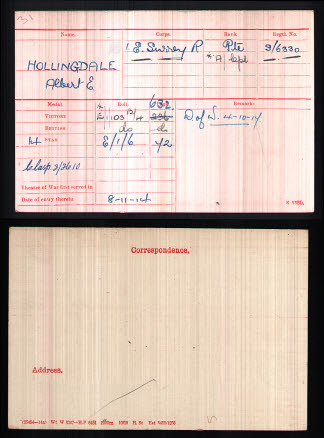 Name. Corps. Rank Regtl. No.
1/E. Surrey R Pte 3/6330
HOLLINGDALE *A/Cpl
Albert E
Medal Roll. 632 Remarks
VICTORY 236 D of D. 4-10-17
BRITISH do do
14 STAR E/1/6 42
Clasp
Theatre of War first served in
Date of entry therein 8-11-14
Correspondence.
Address.